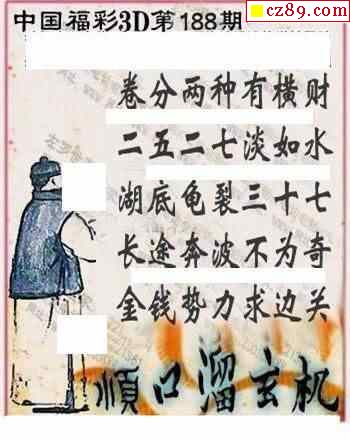 cz89.com
中国福彩3D第188期
卷分两种有横财
二五二七淡如水
湖底龟裂三十七
长途奔波不为奇
金钱势力求边关
顺口溜玄机